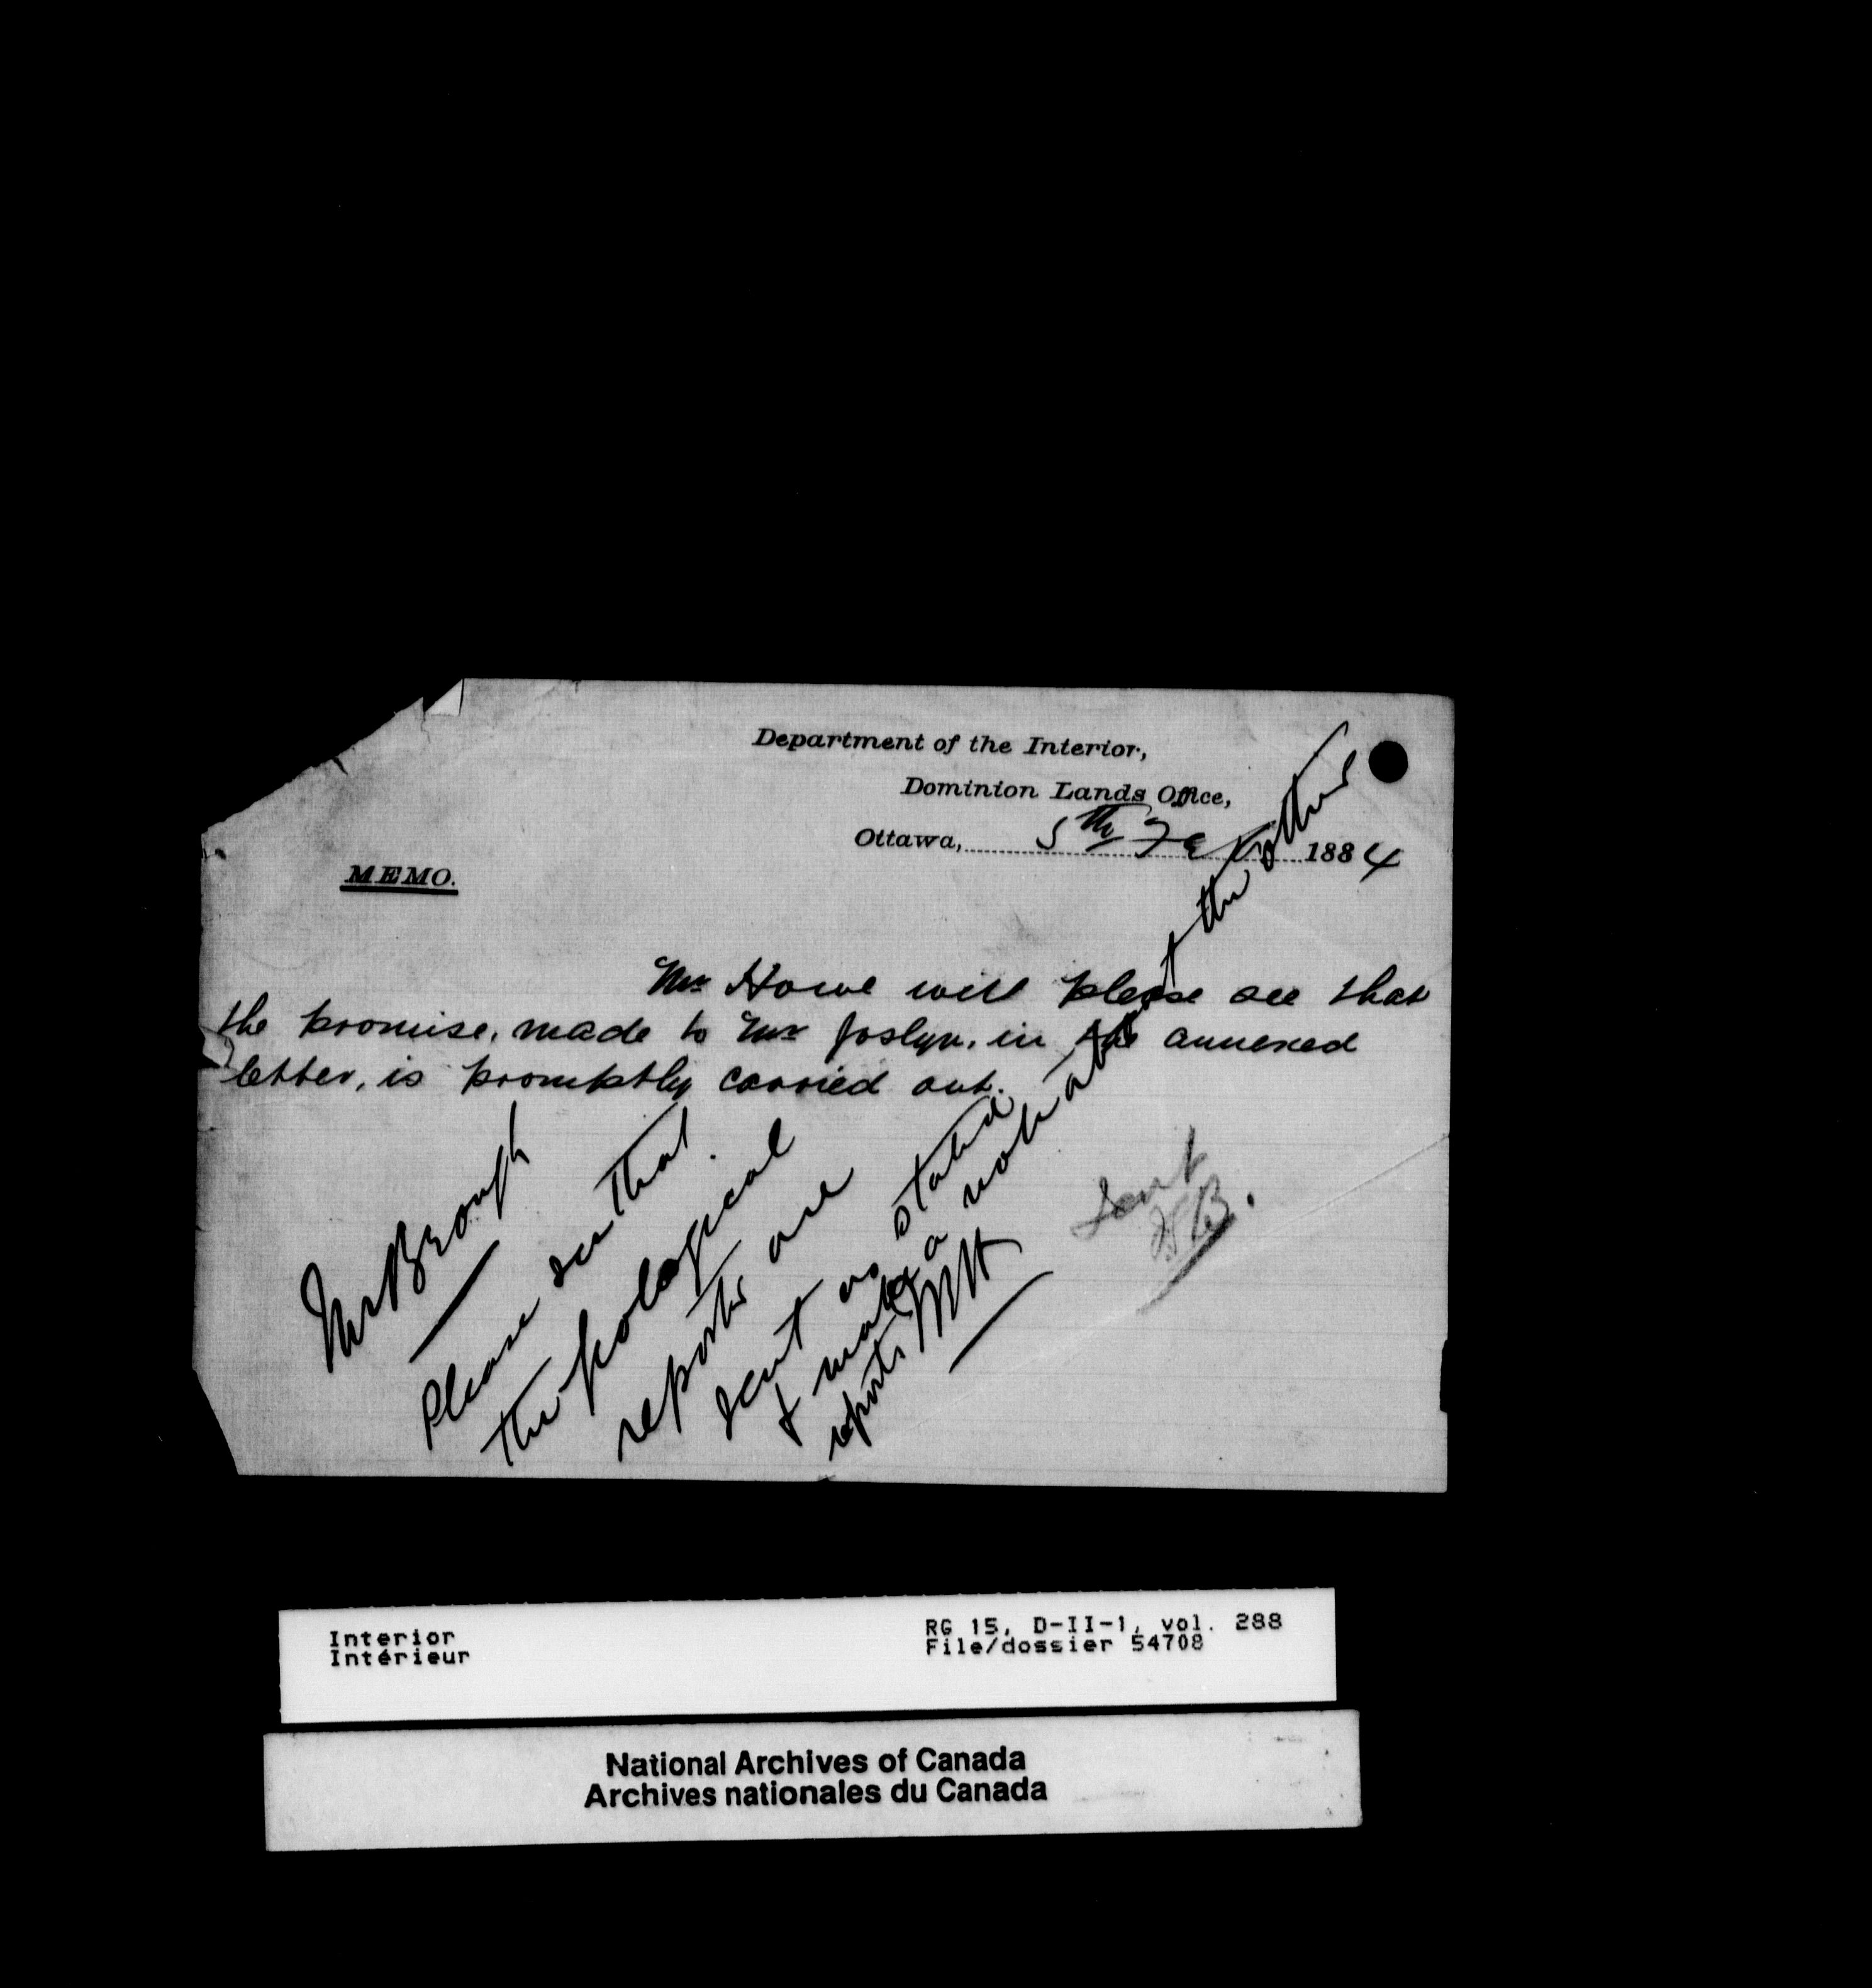 Department of the Interior,
Dominion Lands Office,
Ottawa, 5th Feb 1884
MEMO.
Mr Howe will please see that
the promise, made to Mr Joslyn, in the annexed
letter, is promptly carried out.
Mr Brough
Please see that
the geological
reports are
sent as stated
& make a note about the other
reports
Sent
Interior
Intérieur
RG 15, D-II-1, vol. 288
File/dossier 54708
National Archives of Canada
Archives nationales du Canada